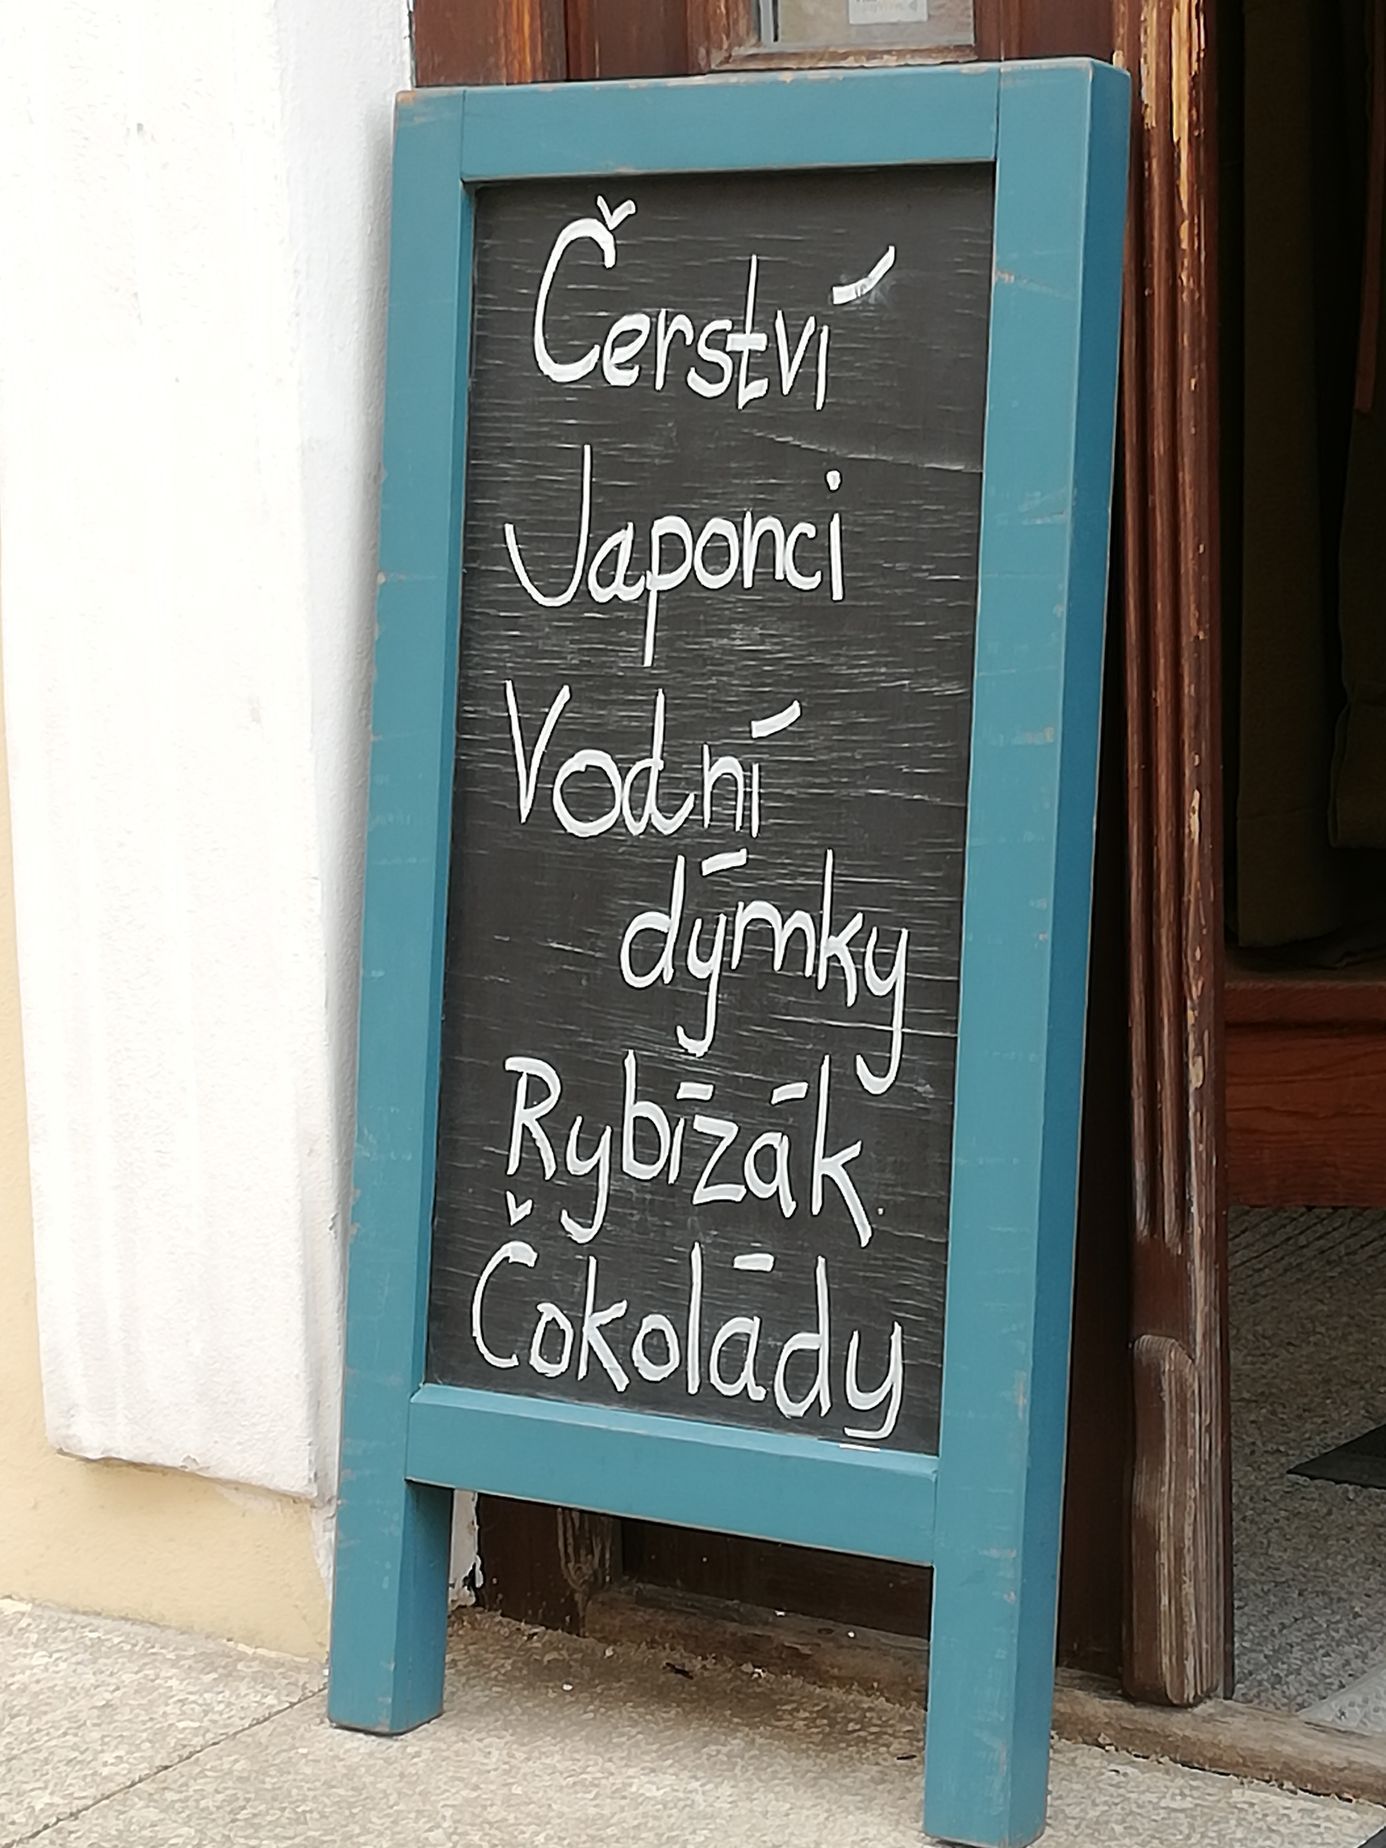 Čerství
Japonci
Vodní
dýmky
Rybízák
Čokolády